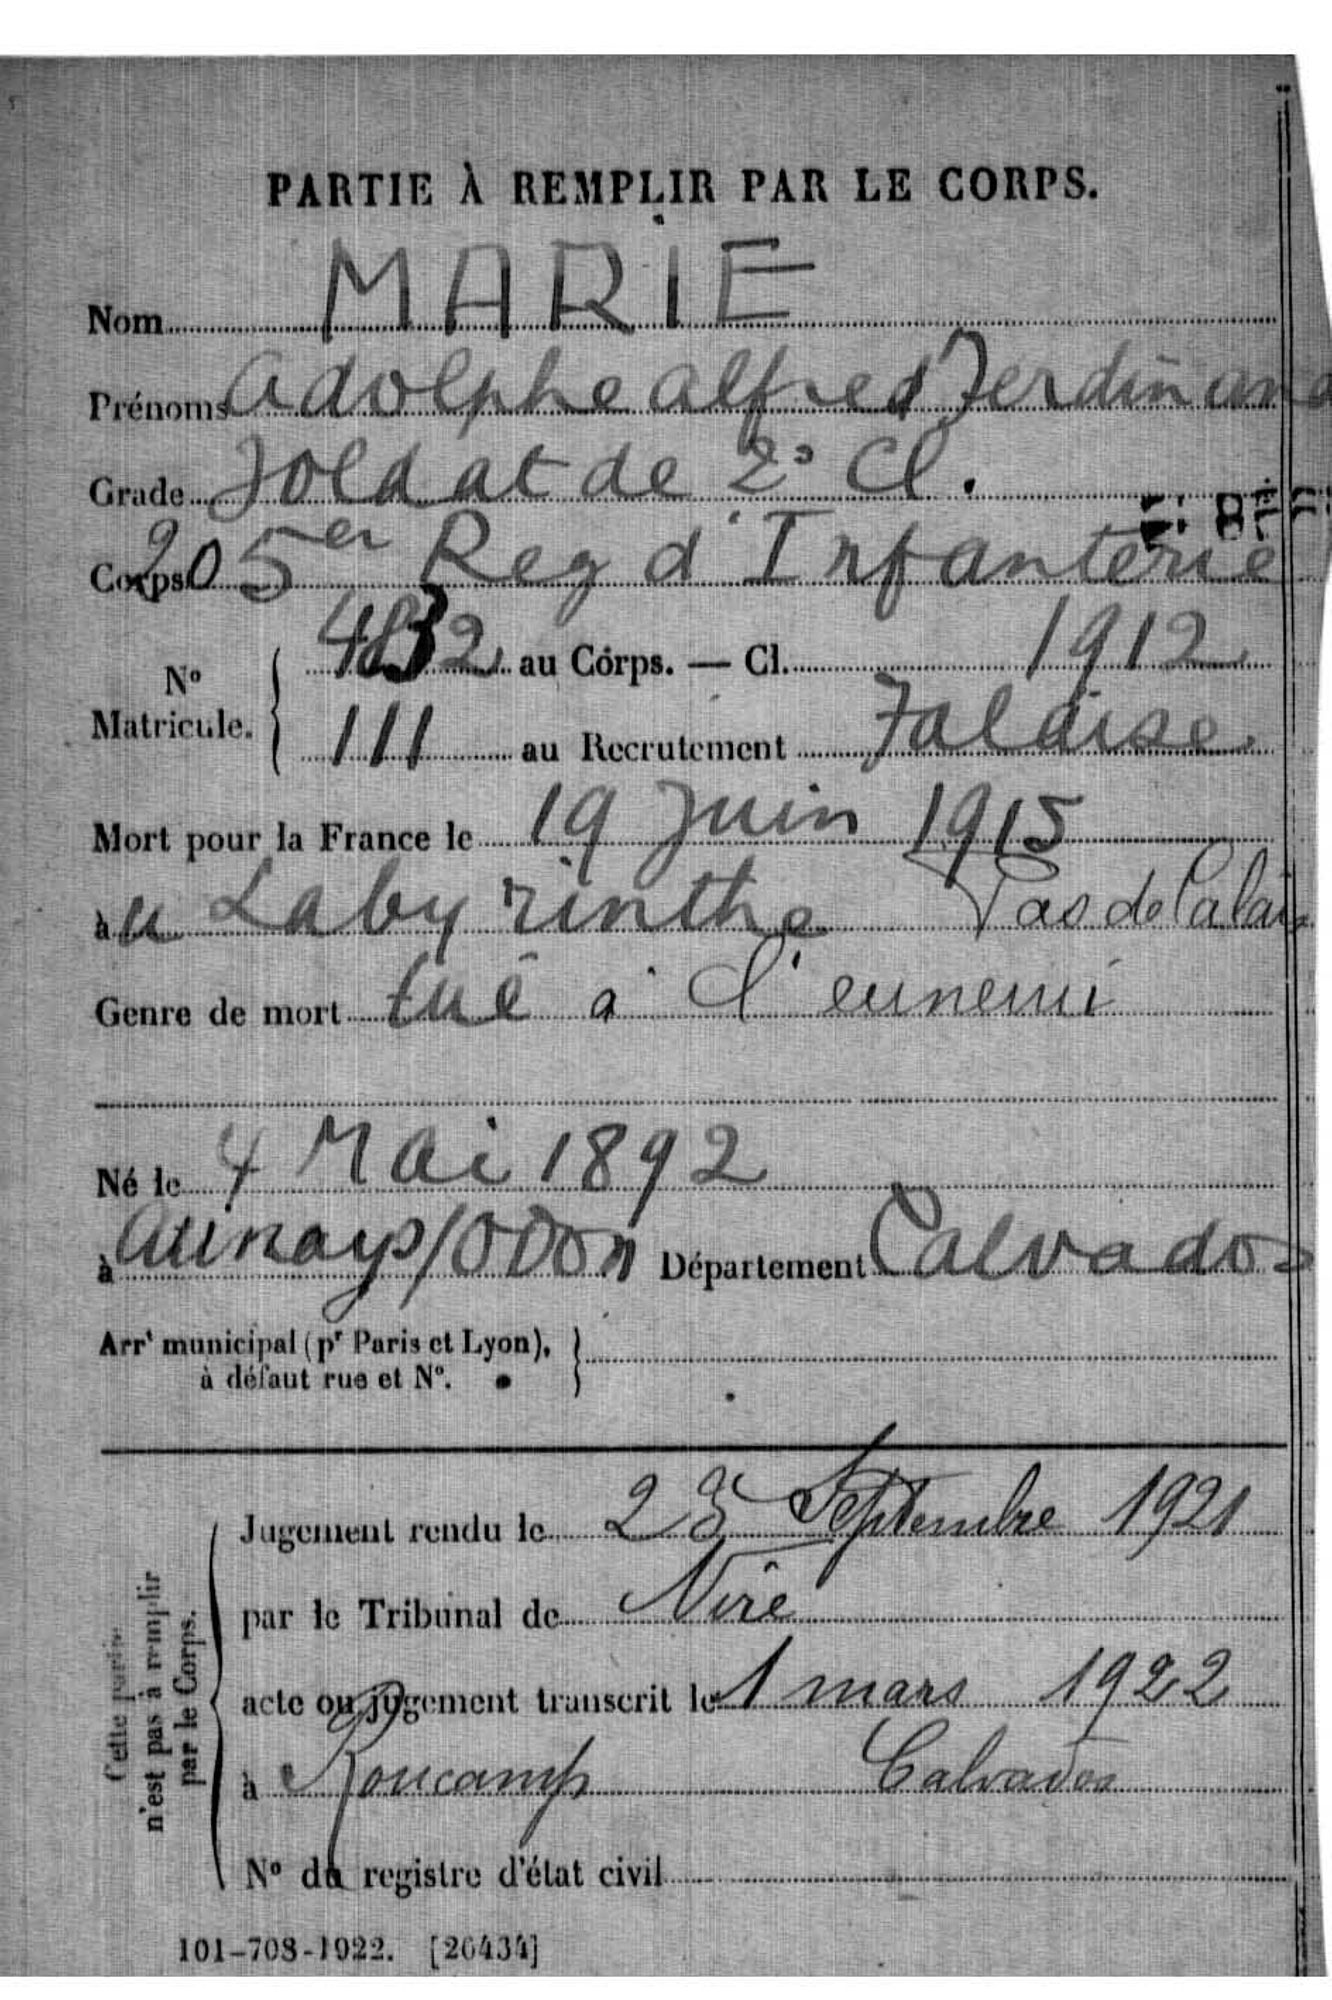 PARTIE À REMPLIR PAR LE CORPS.
Nom MARIE
Prénoms Adolphe Alfred Ferdinand
Grade Soldat de 2e Cl.
Corps 205er Reg d'Infanterie
No Matricule. 4832 au Corps. — Cl. 1912
111 au Recrutement Falaise
Mort pour la France le 19 Juin 1915
àu Labyrinthe Pas de Calais
Genre de mort tué à l'ennemi
Né le 4 Mai 1892
à Aunay s/ Odon Département Calvados
Arrt municipal (pr Paris et Lyon),
à défaut rue et No.
Cette partie
n'est pas à remplir
par le Corps.
Jugement rendu le 23 Septembre 1921
par le Tribunal de Vire
acte ou jugement transcrit le 1 mars 1922
à Roucamp Calvados
No du registre d'état civil
101-708-1922. [26434]